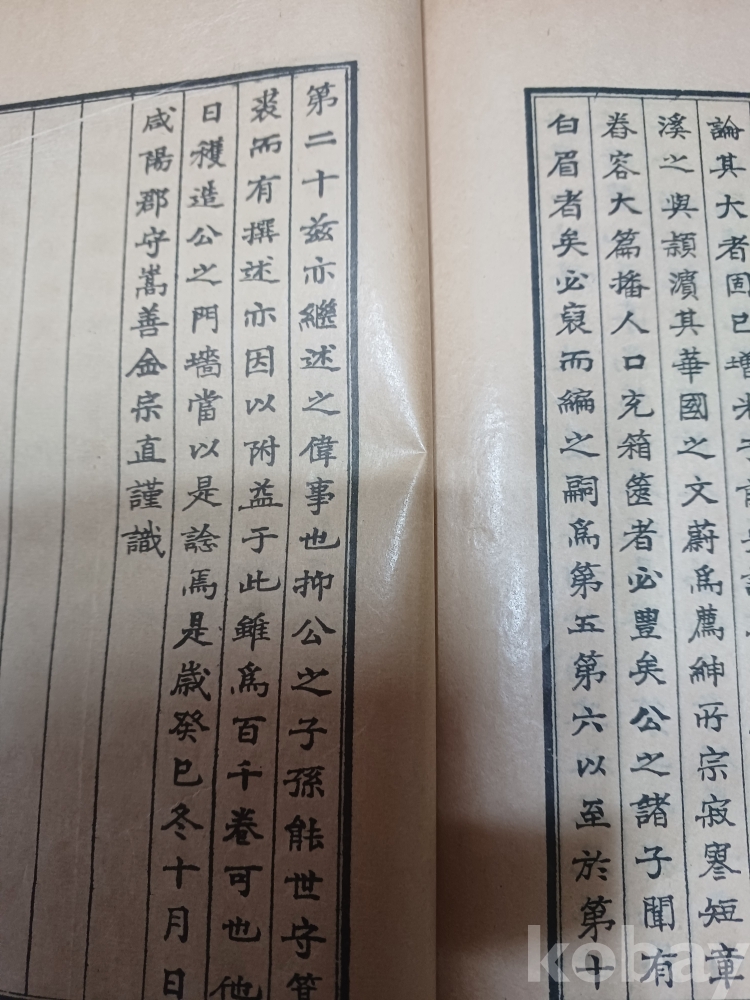 論其大者固已增光于
溪之與潁濱其華國之文蔚爲薦紳所宗寂寥短章
舂容大篇播人口充箱篋者必豊矣公之諸子聞有
白眉者矣必裒而編之嗣爲第五第六以至於第十
第二十茲亦繼述之偉事也抑公之子孫能世守箕
裘而有撰述亦因以附益于此雖爲百千卷可也他
日穫造公之門墻當以是諗焉是歲癸巳冬十月日
咸陽郡守嵩善金宗直謹識
kobay